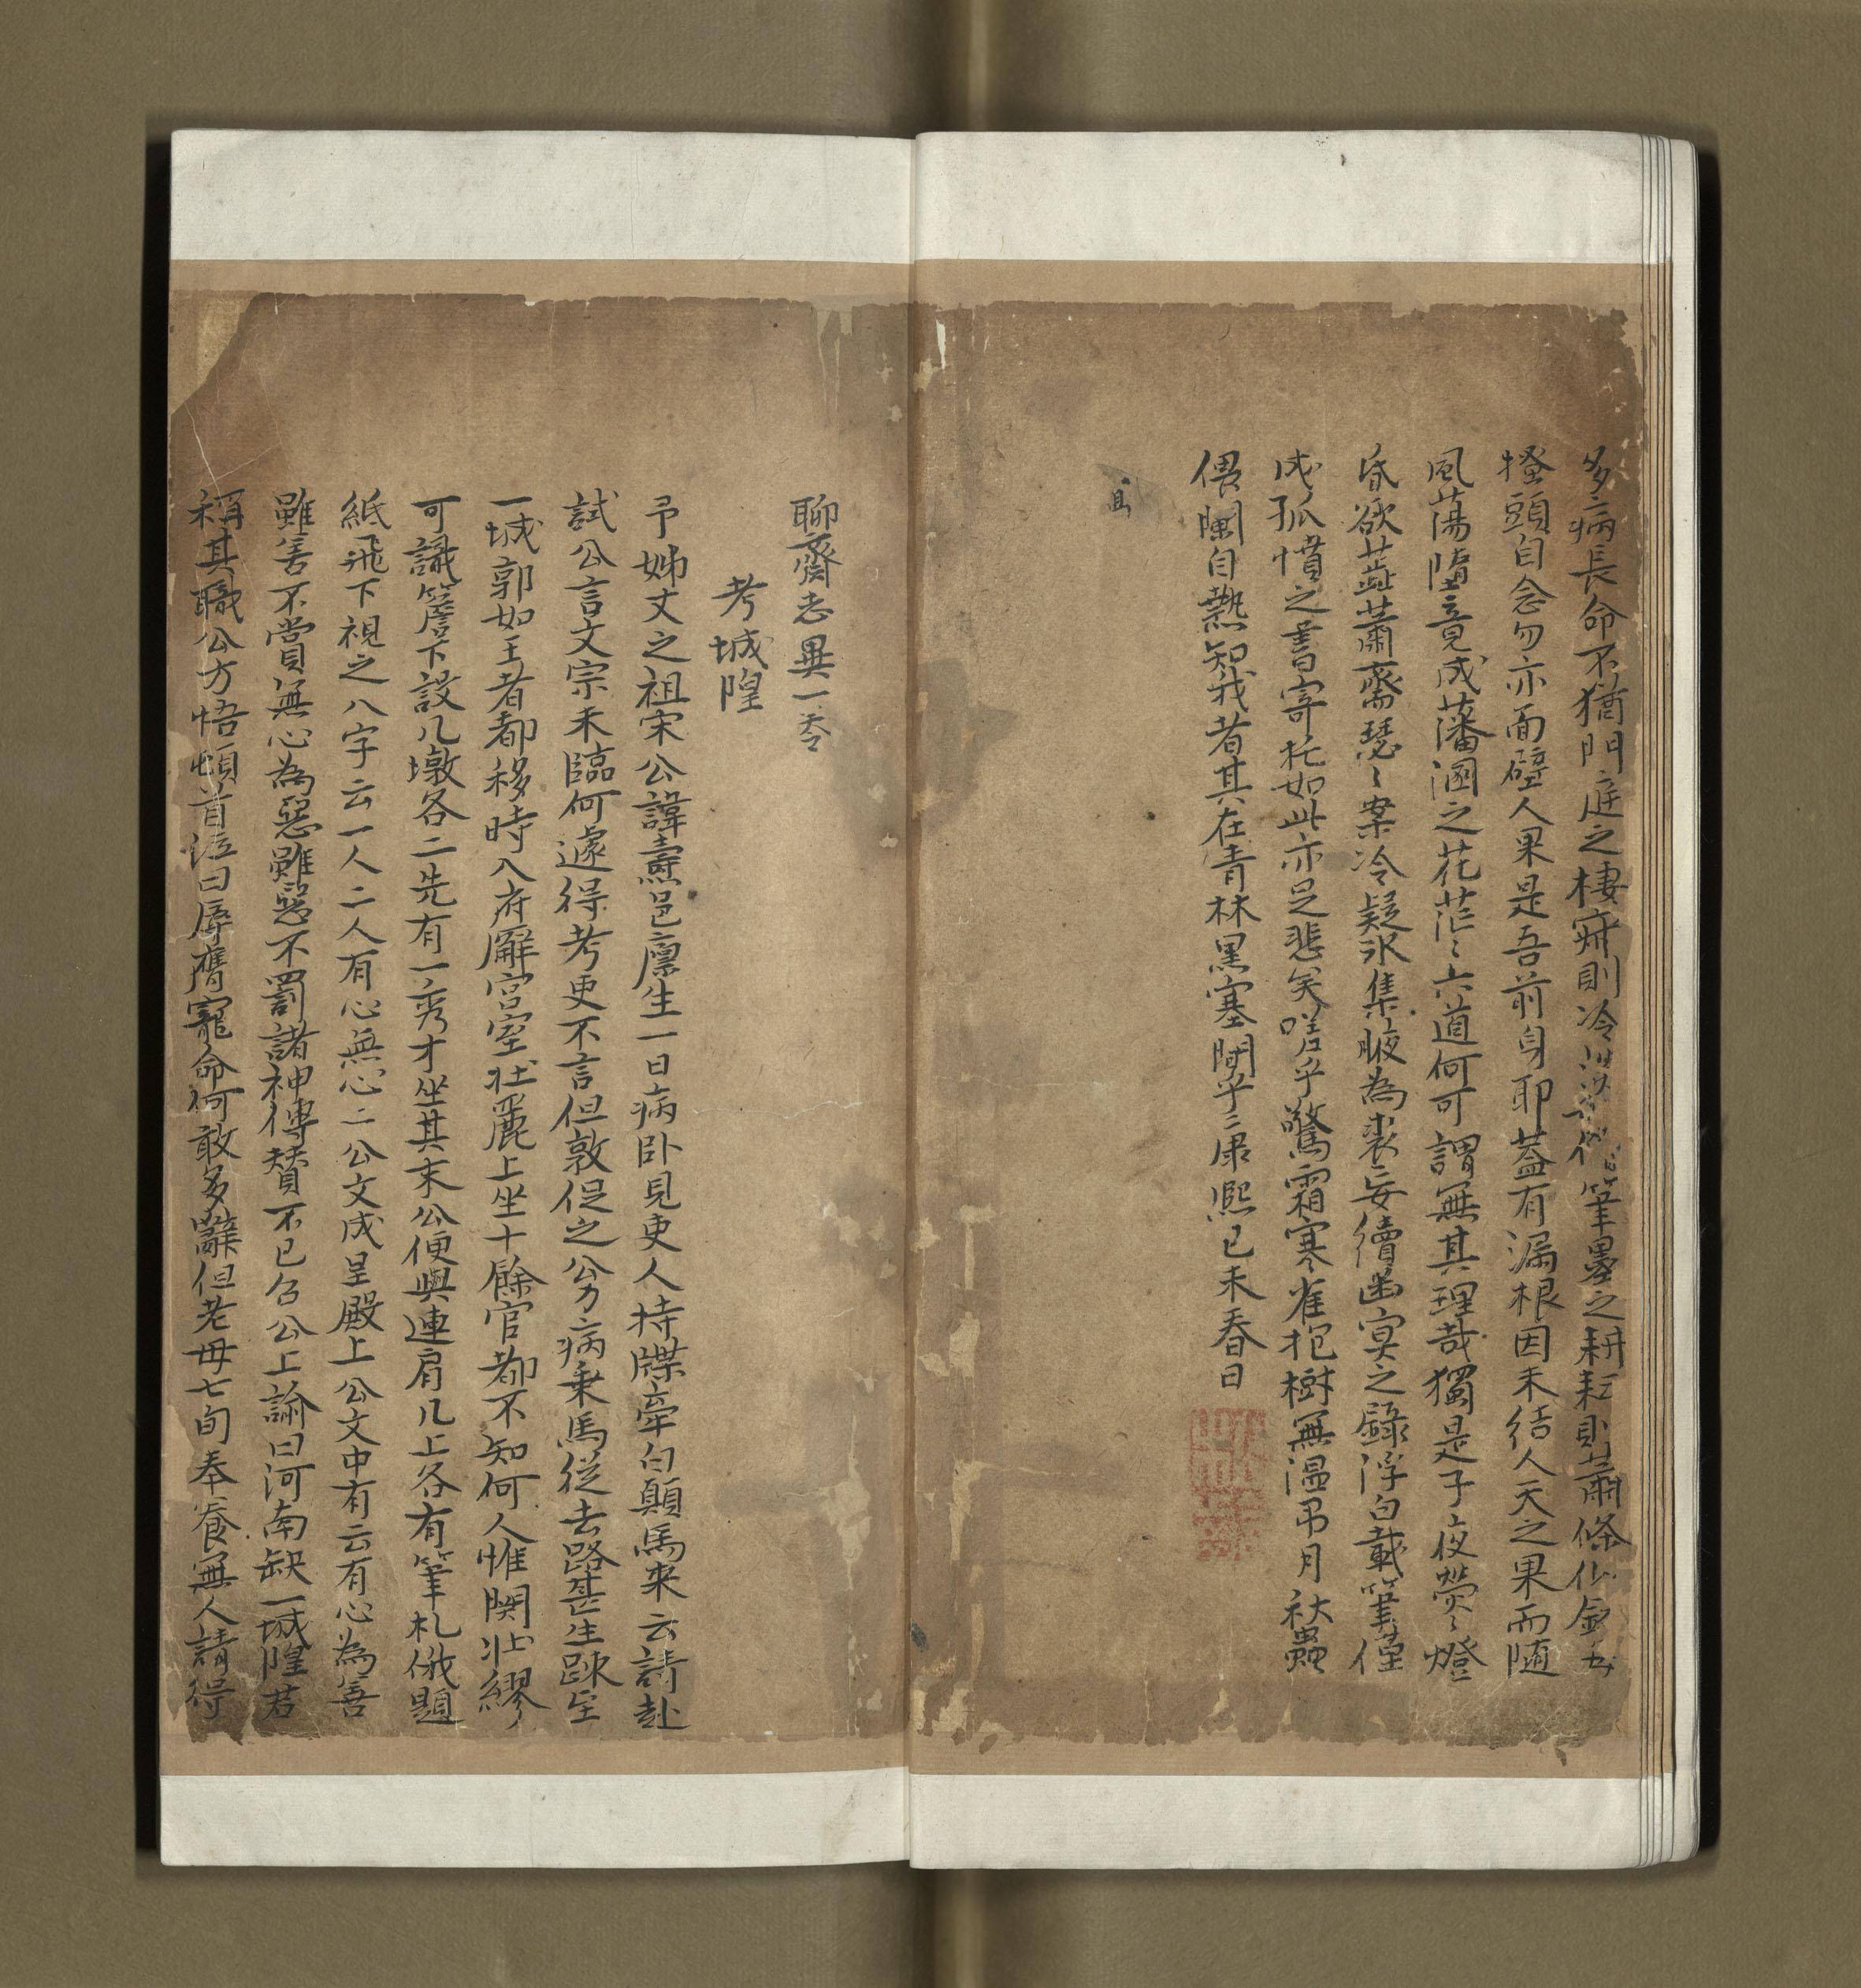 多病長命不猶門庭之棲寂則冷淡如僧筆墨之耕耘則蕭條似鉢每
搔頭自念勿亦面壁人果是吾前身耶蓋有漏根因未結人天之果而隨
風蕩墮竟成藩溷之花茫〻六道何可謂無其理哉獨是子夜熒〻燈
昏欲蕋蕭齋瑟〻案冷疑冰集腋為裘妄續幽冥之錄浮白載筆僅
成孤憤之書寄托如此亦足悲矣嗟乎驚霜寒雀抱樹無温吊月秋蟲
偎闌自熱知我者其在青林黑塞間乎康熙己未春日
聊齋志異一卷
考城隍
予姊丈之祖宋公諱燾邑廩生一日病卧見吏人持牒牽白顛馬来云請赴
試公言文宗未臨何遽得考吏不言但敦促之公力病乗馬從去路甚生疎至
一城郭如王者都移時入府廨宫室壮麗上坐十餘官都不知何人惟関壮繆
可識簷下設几墩各二先有一秀才坐其末公便與連肩几上各有筆札俄題
紙飛下視之八字云一人二人有心無心二公文成呈殿上公文中有云有心為善
雖善不賞無心為惡雖惡不罰諸神傳贊不已召公上諭曰河南缺一城隍君
稱其職公方悟頓首泣曰辱膺寵命何敢多辭但老母七旬奉養無人請得